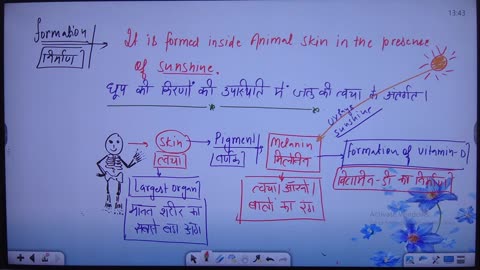 13:43
formation
निर्माण
It is formed inside Animal skin in the presence
of sunshine.
धूप की किरणों की उपस्थिति में जन्तु की त्वचा के अन्तर्गत।
UV rays
sunshine
skin
त्वचा
Pigment
वर्णक
Melanin
मिलेनिन
formation of vitamin-D
विटामिन-डी का निर्माण
Largest organ
मानव शरीर का
सबसे बड़ा अंग
त्वचा, आँखों
बालों का रंग
Activate Windows